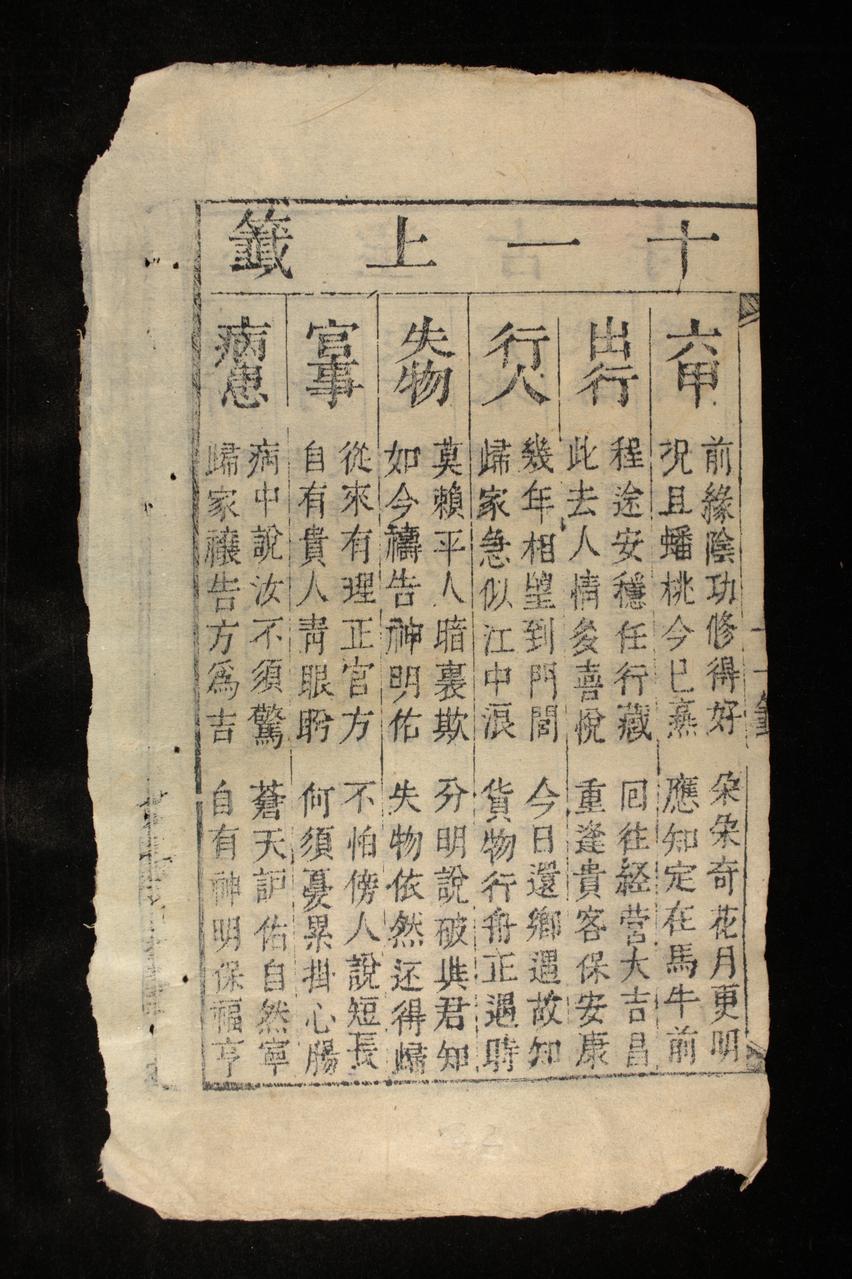 十一上籤
六甲
前緣陰功修得好 朶朶奇花月更明
況且蟠桃今已熟 應知定在馬牛前
出行
程途安穩任行藏 回往経营大吉昌
此去人情多喜悅 重逢貴客保安康
行人
幾年相望到門閭 今日還鄉遇故知
歸家急似江中浪 貨物行舟正遇時
失物
莫賴平人暗裏欺 分明說破與君知
如今禱告神明佑 失物依然还得歸
官事
從來有理正官方 不怕傍人說短長
自有貴人靑眼盻 何須憂累掛心膓
病患
病中說汝不須驚 蒼天訨佑自然寧
歸家禳告方爲吉 自有神明保福亨
十一籤